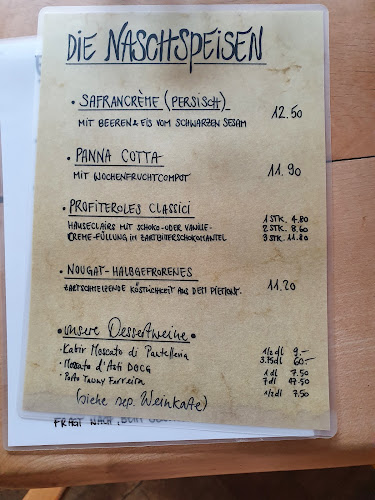 DIE NASCHSPEISEN
• SAFRANCRÈME (PERSISCH) 12.50
MIT BEEREN & EIS VOM SCHWARZEN SESAM
• PANNA COTTA
MIT WOCHENFRUCHTCOMPOT 11.90
• PROFITEROLES CLASSICI 1 STK. 4.80
HAUSECLAIRS MIT SCHOKO- ODER VANILLE- 2 STK. 8.60
CREME-FÜLLUNG IN ZARTBITTERSCHOKOMANTEL 3 STK. 11.80
• NOUGAT-HALBGEFRORENES
ZARTSCHMELZENDE KÖSTLICHKEIT AUS DEM PIEMONT. 11.20
• unsere Dessertweine •
• Kabir Moscato di Pantelleria 1/2 dl 9.-
3.75dl 60.-
• Moscato d'Asti DOCG 1 dl 7.50
7 dl 47.50
• Porto Tawny Ferreira 1/2 dl 7.50
(siehe sep. Weinkarte)
FRAGT NACH